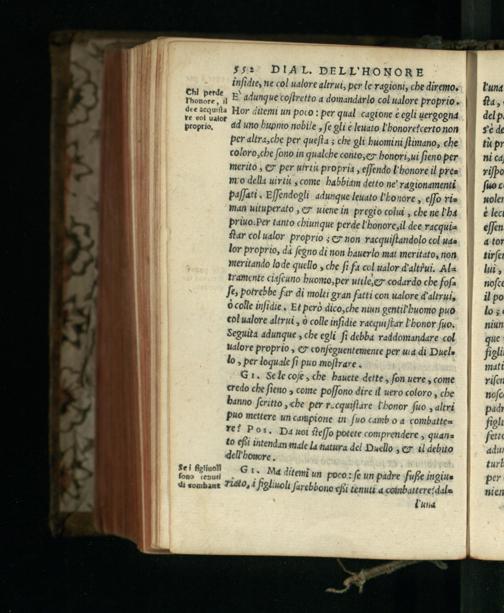 552 DIAL. DELL'HONORE
insidie, ne col ualore altrui, per le ragioni, che diremo.
Chi perde
l'honore, il
dee acquista
re col ualor
proprio.
E' adunque costretto a domandarlo col ualore proprio.
Hor ditemi un poco: per qual cagione è egli uergogna
ad uno huomo nobile, se gli è leuato l'honore? certo non
per altra, che per questa; che gli huomini stimano, che
coloro, che sono in qualche conto, & honori, ui sieno per
merito, & per uirtù propria, essendo l'honore il pre-
mio della uirtù, come habbiam detto ne' ragionamenti
passati. Essendogli adunque leuato l'honore, esso ri-
man uituperato, & uiene in pregio colui, che ne l'ha
priuo. Per tanto chiunque perde l'honore, il dee racqui-
star col ualor proprio; & non racquistandolo col ua-
lor proprio, dà segno di non hauerlo mai meritato, non
meritando lode quello, che si fa col ualor d'altrui. Al-
tramente ciascuno huomo, per utile, & codardo che fos-
se, potrebbe far di molti gran fatti con ualore d'altrui,
ò colle insidie. Et però dico, che niun gentil'huomo puo
col ualore altrui, ò colle insidie racquistar l'honor suo.
Seguita adunque, che egli si debba raddomandare col
ualore proprio, & conseguentemente per uia di Duel-
lo, per loquale si puo mostrare.
GI. Se le cose, che hauete dette, son uere, come
credo che sieno, come possono dire il uero coloro, che
hanno scritto, che per racquistare l'honor suo, altri
puo mettere un campione in suo cambio a combatte-
re? POS. Da uoi stesso potete comprendere, quan-
to eßi intendan male la natura del Duello, & il debito
dell'honore.
Se i figliuoli
sono tenuti
di combatt
GI. Ma ditemi un poco: se un padre fusse ingiu-
riato, i figliuoli sarebbono eßi tenuti a combattere? dal-
l'una